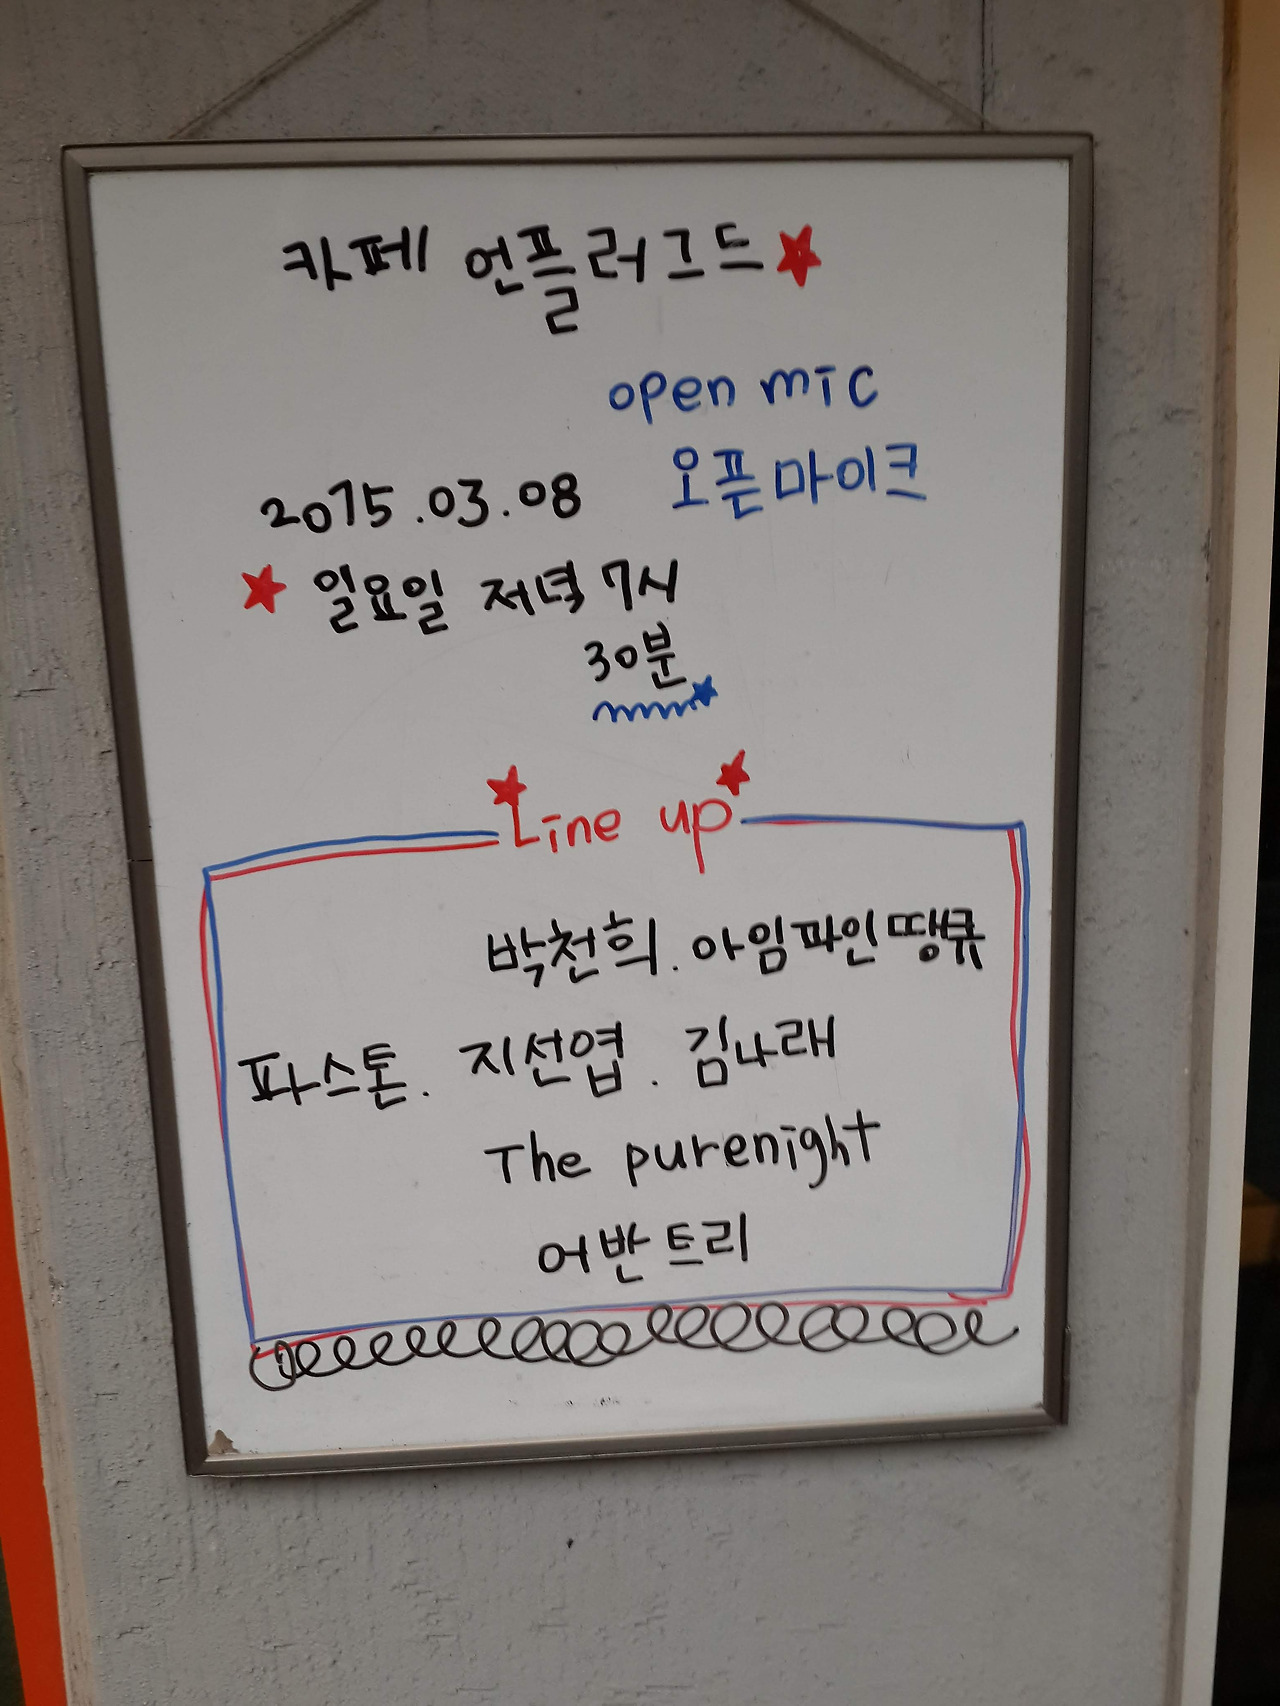 카페 언플러그드
open mic
오픈마이크
2015.03.08
일요일 저녁 7시
30분
Line up
박천희. 아임파인땡큐
파스톤. 지선엽. 김나래
The purenight
어반트리